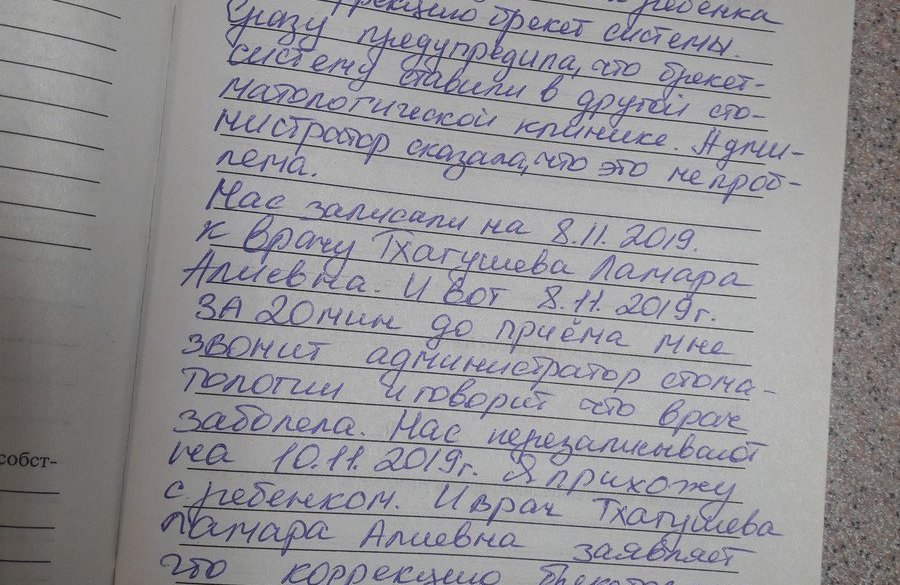 ребенка
коррекцию брекет системы.
Сразу предупредила, что брекет-
систему ставили в другой сто-
матологической клинике. Адми-
нистратор сказала, что это не проб-
лема.
Нас записали на 8.11.2019.
к врачу Тхагушева Ламара
Алиевна. И вот 8.11.2019г.
за 20 мин до приёма мне
звонит администратор стома-
тологии и говорит что врач
заболела. Нас перезаписывают
на 10.11.2019г. Я прихожу
собст-
с ребенком. И врач Тхагушева
Ламара Алиевна заявляет
что коррекцию